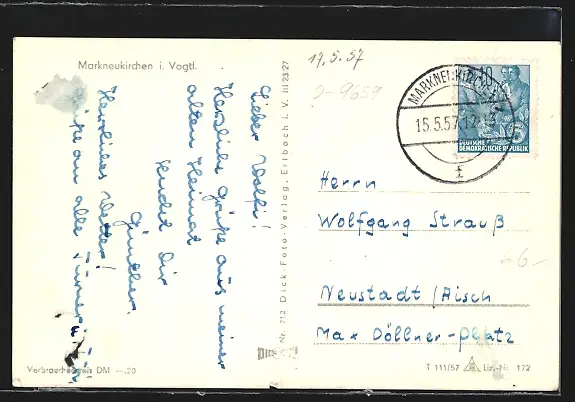 Markneukirchen i. Vogtl.
Lieber Wolfi!
Herzliche Grüße aus meiner
alten Heimat
sendet Dir
Günther.
Herrliches Wetter!
Grüße an alle
Verbraucherpreis DM —,20
Nr. 712 Dick-Foto-Verlag, Erlbach i. V. III 23 27
DICK
17.5.57
J-9659
MARKNEUKIRCHEN
15.5.57
f
10
DEUTSCHE
DEMOKRATISCHE REPUBLIK
Herrn
Wolfgang Strauß
66-
Neustadt/Aisch
Max Döllner-Platz
T 111/57 Liz.-Nr. 172